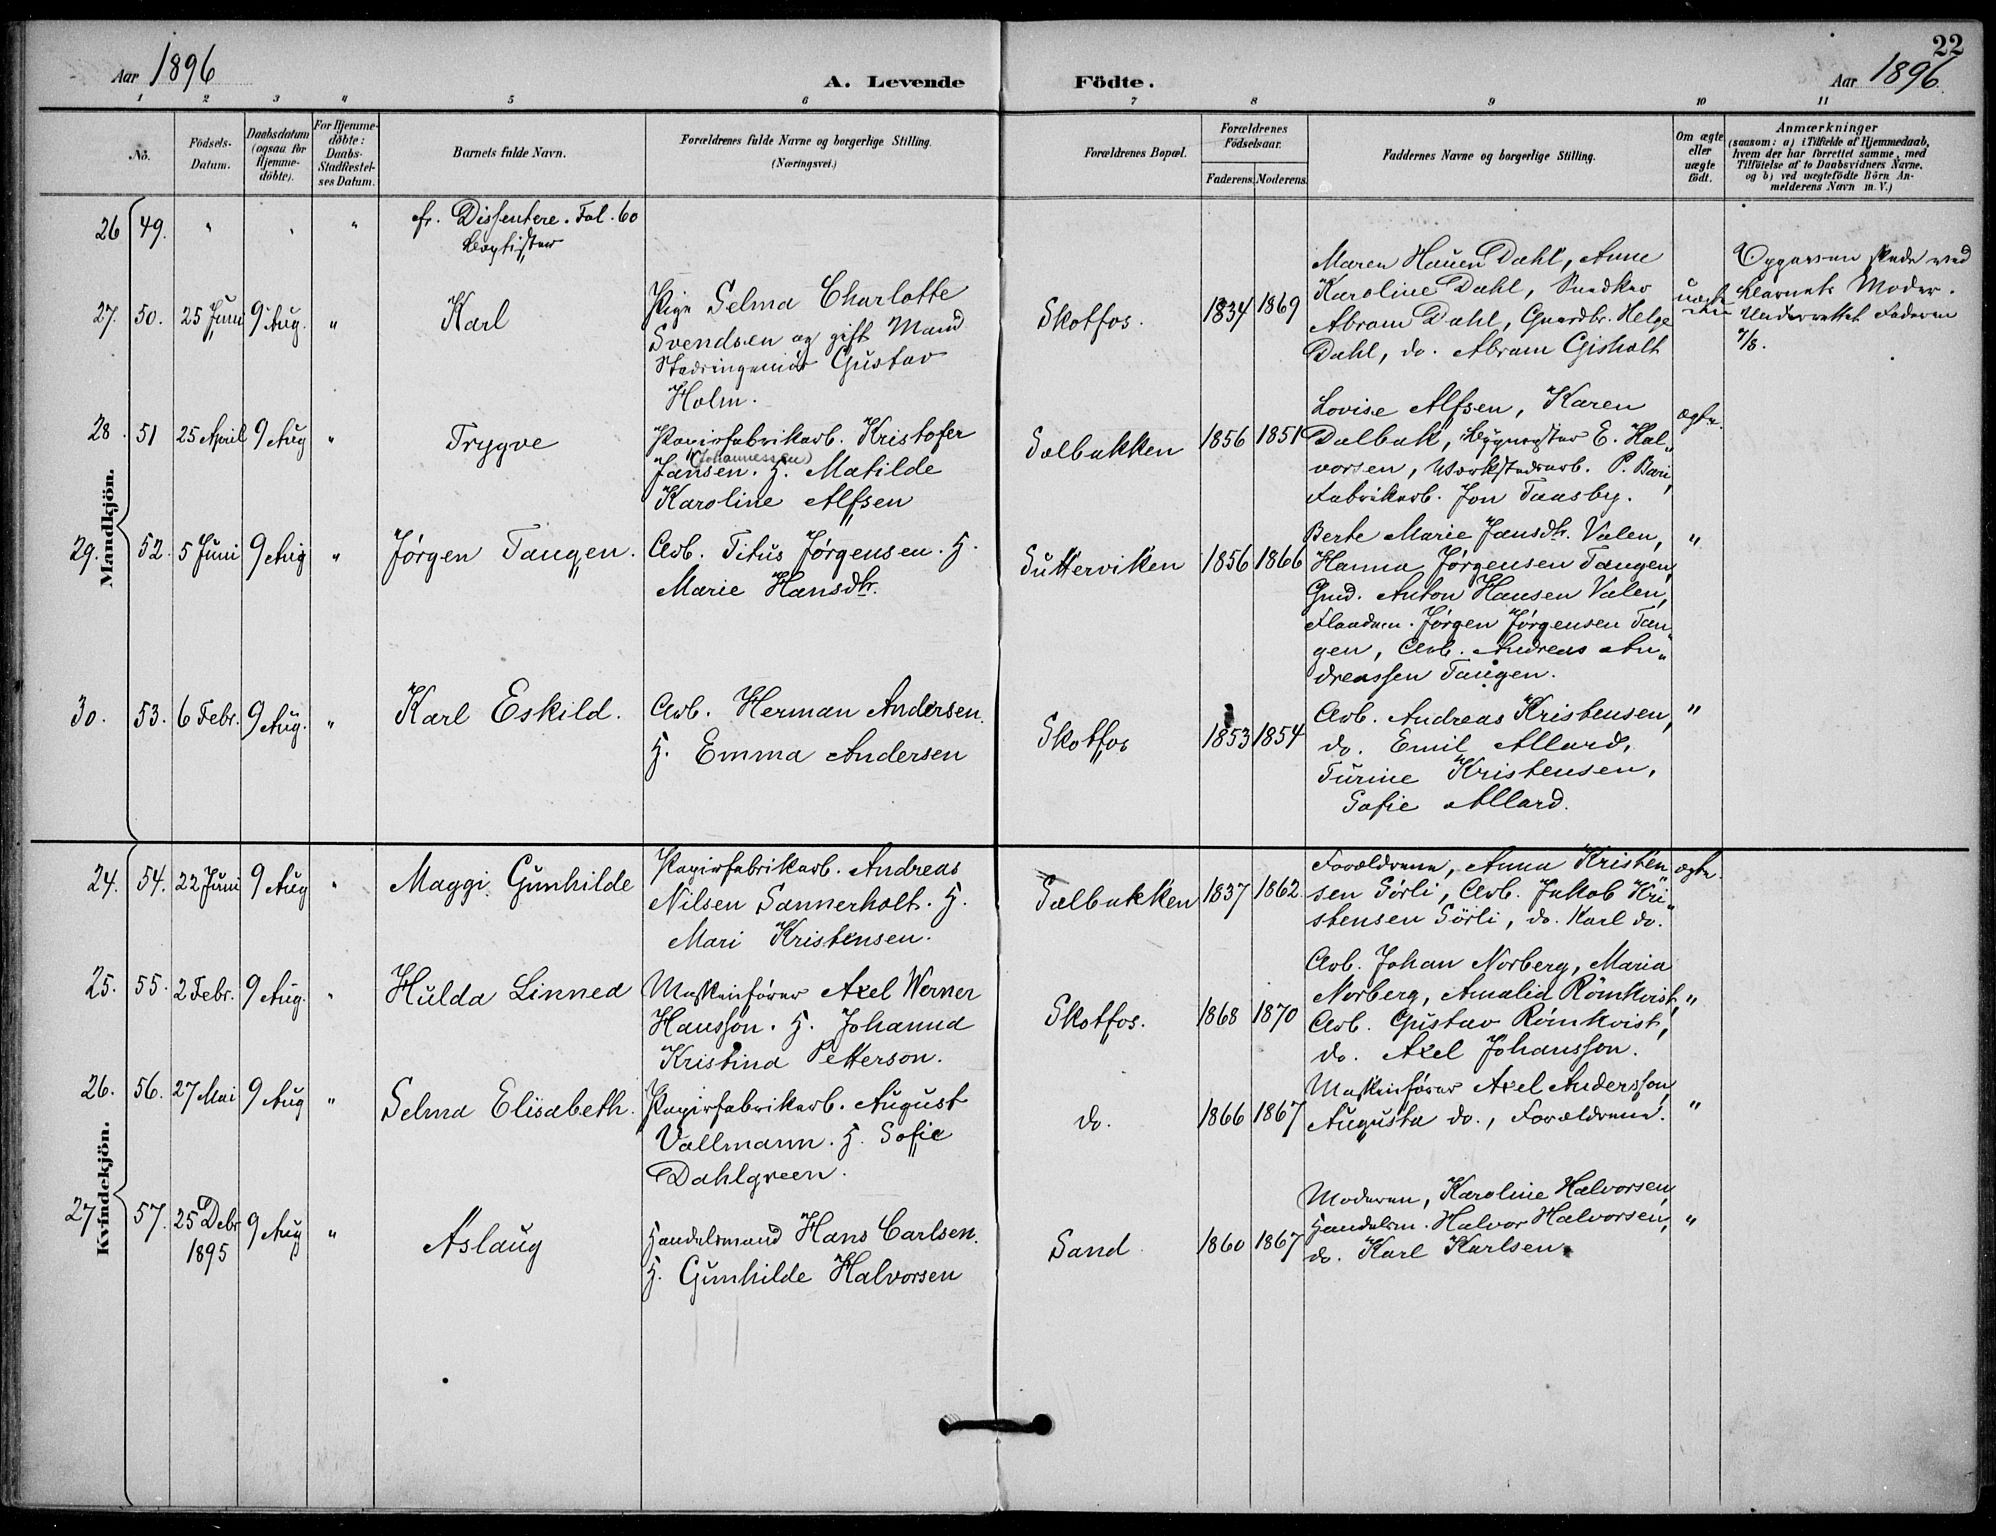 22
Aar 1896
A. Levende
Födte.
Aar 1896.
1 2 3 4 5 6 7 8 9 10 11
No.
Födsels-
Datum.
Daabsdatum
(ogsaa for
Hjemme-
döbte).
For Hjemme-
döbte:
Daabs-
Stadfæstel-
ses Datum.
Barnets fulde Navn.
Forældrenes fulde Navne og borgerlige Stilling.
(Næringsvei.)
Forældrenes Bopæl.
Forældrenes
Födselsaar.
Faderens. Moderens.
Faddernes Navne og borgerlige Stilling.
Om ægte
eller
uægte
födt.
Anmærkninger
(saasom: a) i Tilfælde af Hjemmedaab,
hvem der har forrettet samme, med
Tilföielse af to Daabsvidners Navne.
og b) ved uægtefödte Börn An-
melderens Navn m. V.)
Mandkjön.
26 49. " " "
fr. Dissentere. Fol. 60
Baptister
27. 50. 25 Juni 9 Aug. "
Karl
Pige Selma Charlotte
Svendsen og gift Mand
Stadsingeniør Gustav
Holm.
Skotfos.
1834 1869
Maren Hauen Dahl, Anne
Karoline Dahl, Snedker
Abram Dahl, Gaardbr. Helge
Dahl, do. Abram Gisholt
uægte
Opgaven skede ved
Barnets Moder.
Underrettet Faderen
7/8.
28. 51 25 April 9 Aug "
Trygve
Papirfabrikarb. Kristofer
(Johannessen)
Jansen. H. Matilde
Karoline Alfsen
Sælbakken
1856 1851
Lovise Alfsen, Karen
Dalbak, Bygmester E. Hal„
vorsen, Værkstedsarb. P. Bari,
Fabrikarb. Jon Taasby.
ægte.
29. 52. 5 Juni 9 Aug "
Jørgen Tangen.
Arb. Titus Jørgensen. H.
Marie Hansdtr.
Sutterviken
1856 1866
Berte Marie Jansdtr. Valen,
Hanna Jørgensen Tangen,
Gmd. Anton Hansen Valen,
Flaadem. Jørgen Jørgensen Tan„
gen, Arb. Andreas An„
dreassen Tangen.
"
30. 53. 6 Febr. 9 Aug. "
Karl Eskild.
Arb. Herman Andersen.
H. Emma Andersen
Skotfos
1853 1854
Arb. Andreas Kristensen,
do. Emil Allard,
Turine Kristensen,
Sofie Allard.
"
Kvindekjön.
24. 54. 22 Juni 9 Aug "
Maggi Gunhilde
Papirfabrikarb. Andreas
Nilsen Sannerholt. H.
Mari Kristensen.
Sælbakken
1837 1862
Forældrene, Anna Kristen„
sen Sörli, Arb. Jakob Kri„
stensen Sörli, do. Karl do.
ægte.
25. 55. 2 Febr. 9 Aug. "
Hulda Linnea
Maskinfører Axel Werner
Hansson. H. Johanna
Kristina Petterson.
Skotfos.
1868 1870
Arb. Johan Norberg, Maria
Norberg, Amalia Römkvist,
Arb. Gustav Römkvist,
do. Axel Johansson.
"
26. 56. 27 Mai 9 Aug "
Selma Elisabeth.
Papirfabrikarb. August
Vallmann. H. Sofie
Dahlgreen.
do.
1866 1867
Maskinfører Axel Andersson,
Augusta do., Forældrene.
"
27 57. 25 Debr 9 Aug "
1895
Aslaug
Handelsmand Hans Carlsen.
H. Gunhilde Halvorsen
Sand
1860 1867
Moderen, Karoline Halvorsen,
Handelsm. Halvor Halvorsen,
do. Karl Karlsen.
"